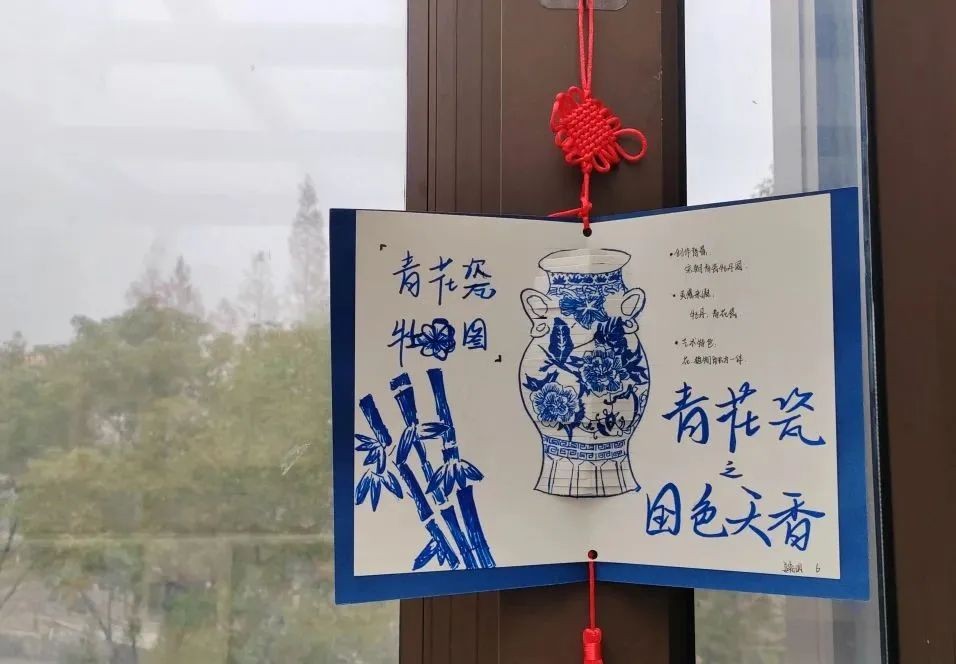 「青花瓷
牡丹图」
• 创作背景:
宋朝青花牡丹图.
• 灵感来源:
牡丹、青花瓷
• 艺术特色:
青花瓷
之
国色天香
6